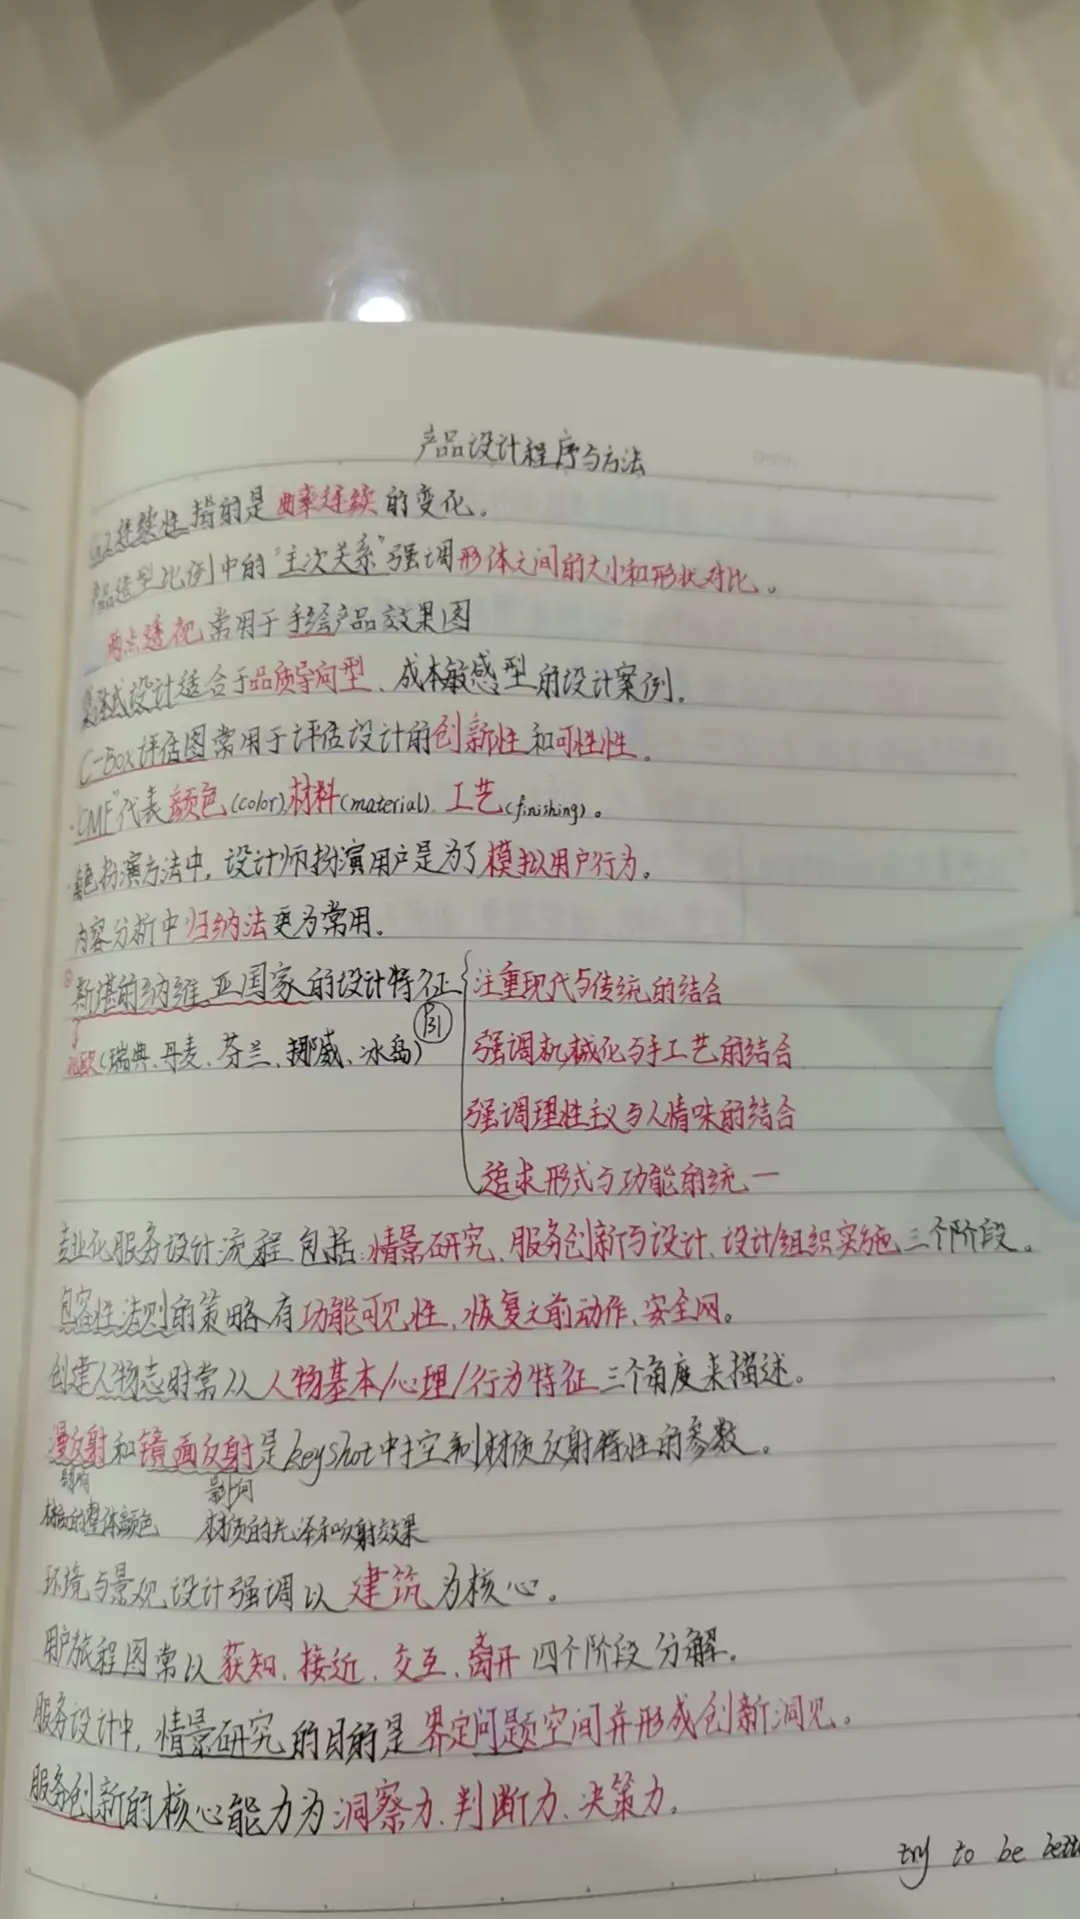 产品设计程序与方法
G2连续性指的是曲率连续的变化。
产品造型比例中的“主次关系”强调形体之间的大小和形状对比。
两点透视常用于手绘产品效果图
式设计适合于品质导向型、成本敏感型的设计案例。
C-Box评估图常用于评估设计的创新性和可性性。
·“CMF”代表颜色(color),材料(material). 工艺(finishing)。
·角色扮演方法中,设计师扮演用户是为了模拟用户行为。
内容分析中归纳法更为常用.
斯堪的纳维亚国家的设计特征 注重现代与传统的结合
北欧(瑞典、丹麦、芬兰、挪威、冰岛) 强调机械化与手工艺的结合
强调理性主义与人情味的结合
追求形式与功能的统一
专业化服务设计流程包括:情景研究、服务创新与设计、设计/组织实施三个阶段。
包容性法则的策略有功能可见性、恢复之前动作、安全网。
创建人物志时常从人物基本/心理/行为特征三个角度来描述。
漫反射和镜面反射是keyshot中控制材质反射特性的参数。
影响 影响
材质的整体颜色 材质的光泽和反射效果
环境与景观设计强调以建筑为核心。
用户旅程图常以获知、接近、交互、离开四个阶段分解。
服务设计中,情景研究的目的是界定问题空间并形成创新洞见。
服务创新的核心能力为洞察力、判断力、决策力。
try to be